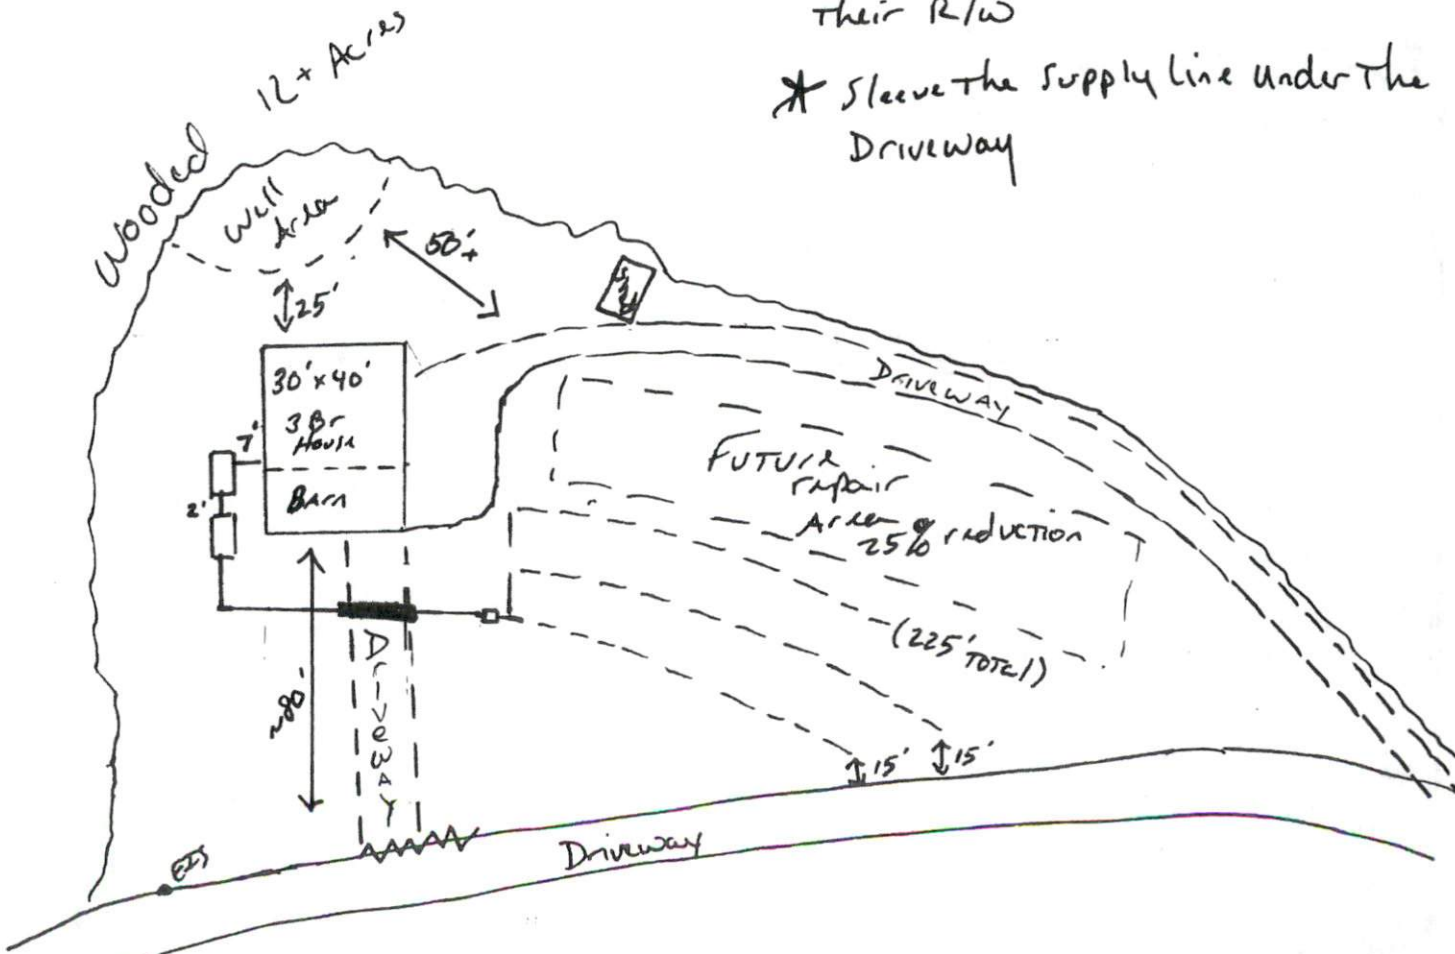 Their R/W
* Sleeve The Supply Line Under The
Driveway
12+ Acres
Wooded
Well
Area
50'+
25'
30' x 40'
3 Br
House
Barn
7'
2'
Driveway
Future
repair
Area
25% reduction
(225'
Total)
~80'
Driveway
15'
15'
Driveway